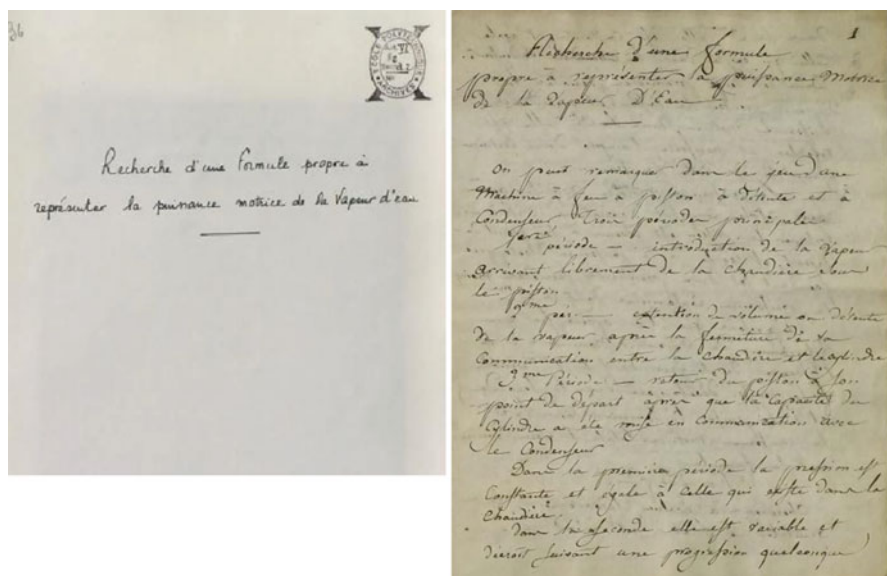 36
ÉCOLE POLYTECHNIQUE
ARCHIVES
X
Recherche d'une Formule propre à
représenter la puissance motrice de la Vapeur d'eau
1
Recherche d'une formule
propre à représenter la puissance Motrice
de la Vapeur D'Eau
On peut remarquer dans le jeu d'une
Machine à feu à piston à détente et à
Condenseur Trois périodes principales
1ere période – introduction de la Vapeur
arrivant librement de la chaudière sous
le piston
2eme per. – extention de volume ou détente
de la vapeur après la fermeture de la
Communication entre la chaudière et le cylindre
3me Période – retour du piston à son
point de départ après que la Capacité du
Cylindre a été mise en Communication avec
le Condenseur
Dans la première période la pression est
Constante et égale à celle qui existe dans la
chaudière.
dans la seconde elle est variable et
décroit suivant une progression quelconque